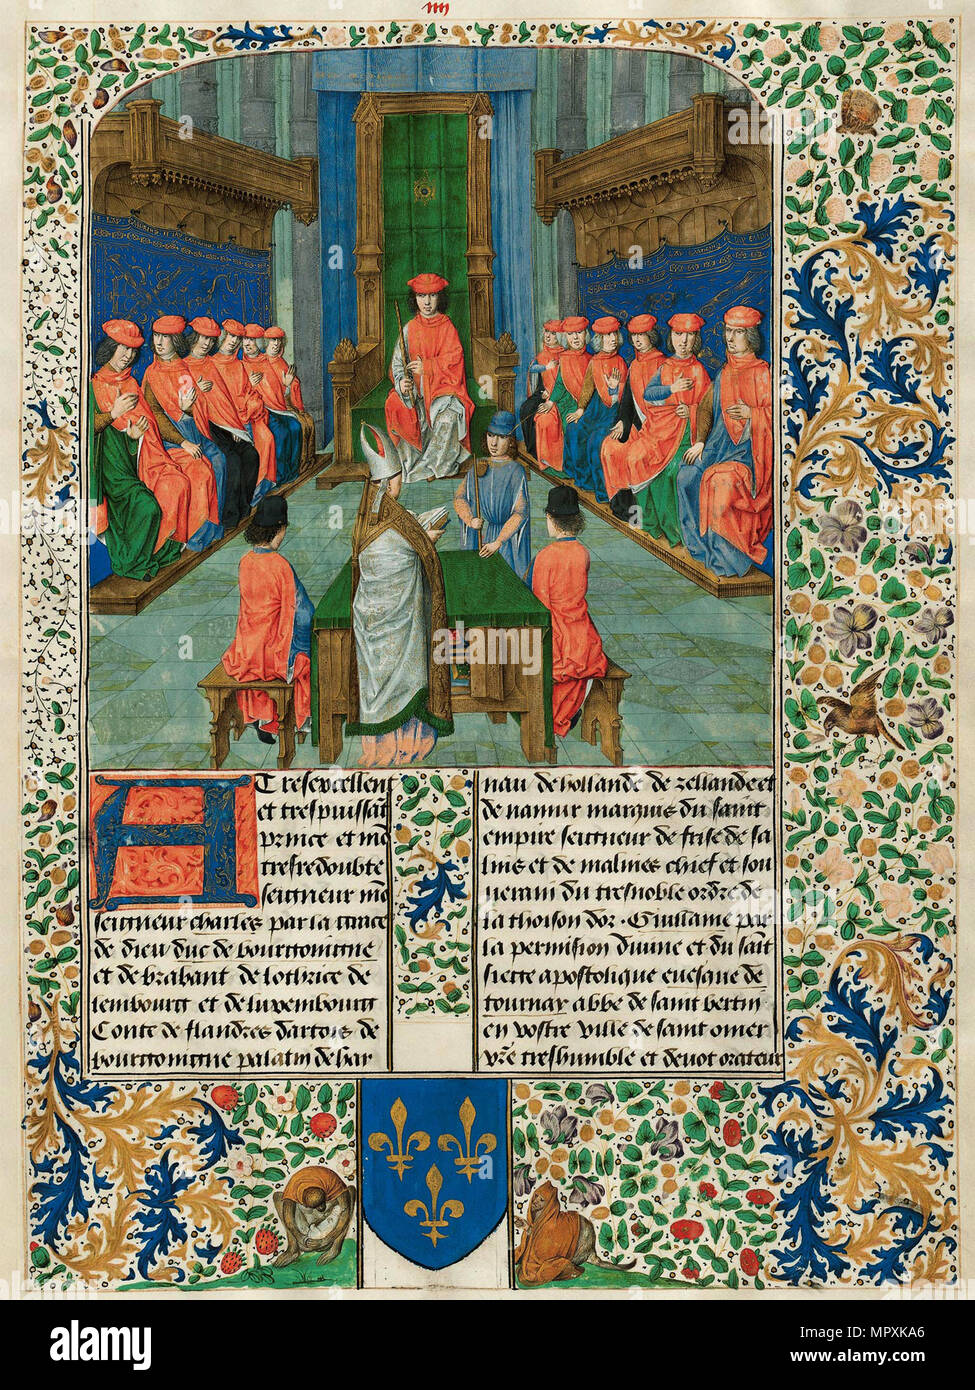 A Tresexcellent
et trespuissāt
prince et mō
tresredoubte
seigneur mō
seigneur charles par la grace
de dieu duc de bourgoingne
et de brabant de lothrice de
lembourg et de luxembourg
Conte de flandres dartois de
bourgoingne palatin de hay
nau de hollande de zellande et
de namur marquis du saint
empire seigneur de frise de sa
lins et de malines chief et sou
uerain du tresnoble ordre de
la thoison dor. Guillame par
la permission diuine et du sāīt
siege apostolique euesque de
tournay abbe de saint bertin
en vostre ville de saint omer
vr̄e treshumble et deuot orateur
alamy stock photo
alamy
Image ID: MPXKA6
www.alamy.com